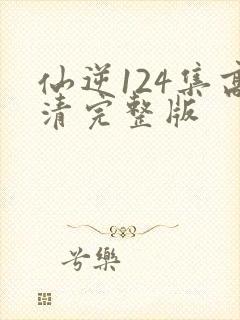 仙逆124集高
清完整版
兮樂